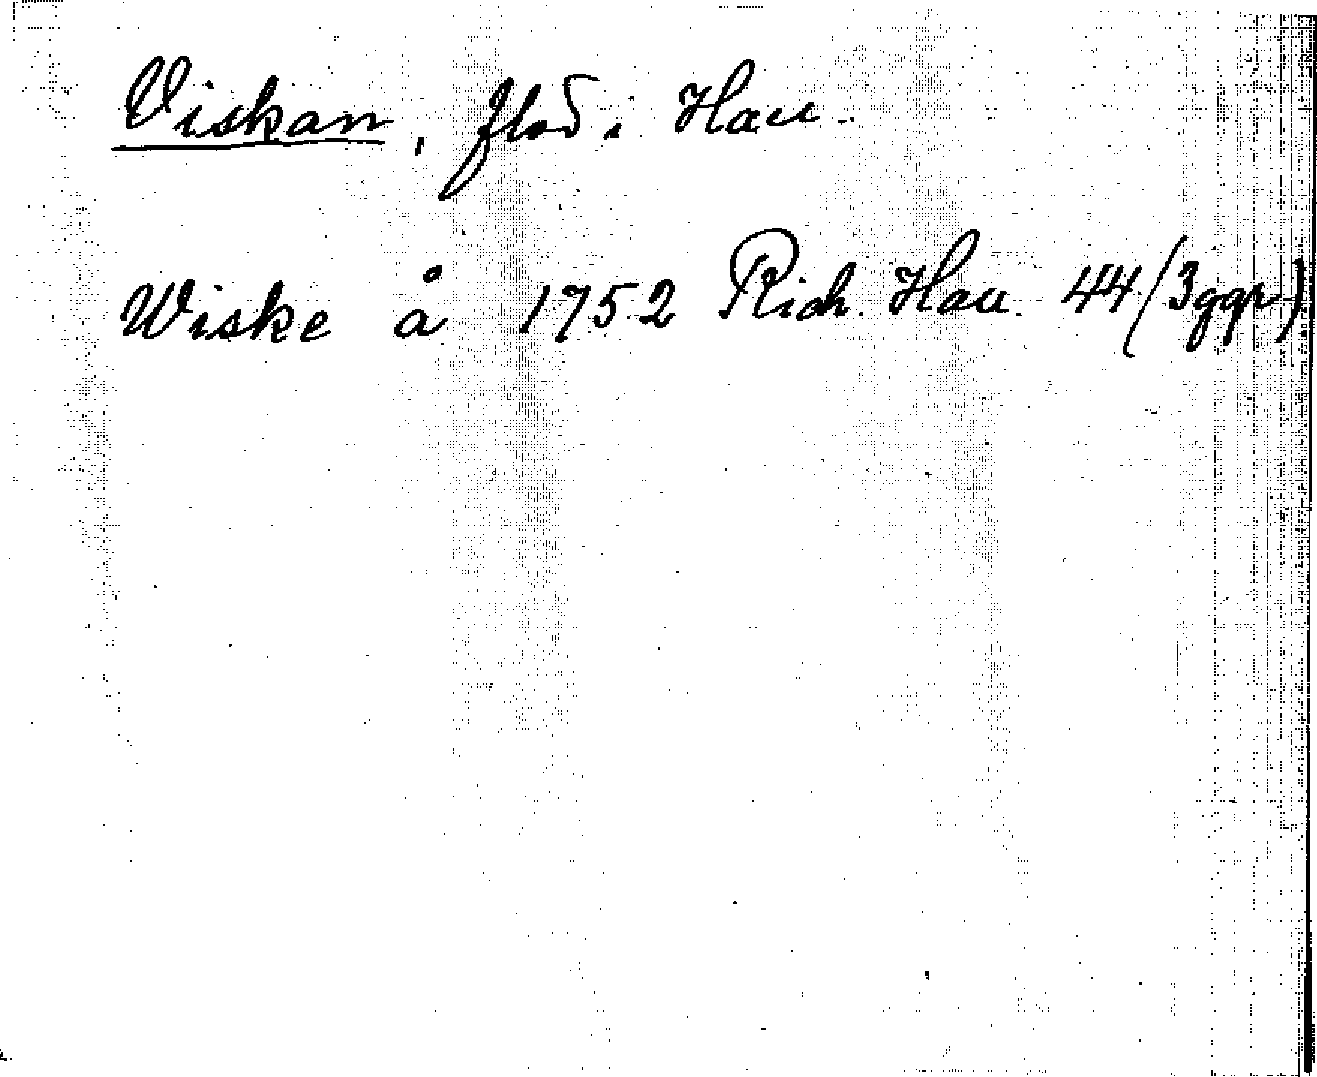 Viskan, flod i Hall.
Wiske å 1752 Rich. Hall. 44 (3 ggr)